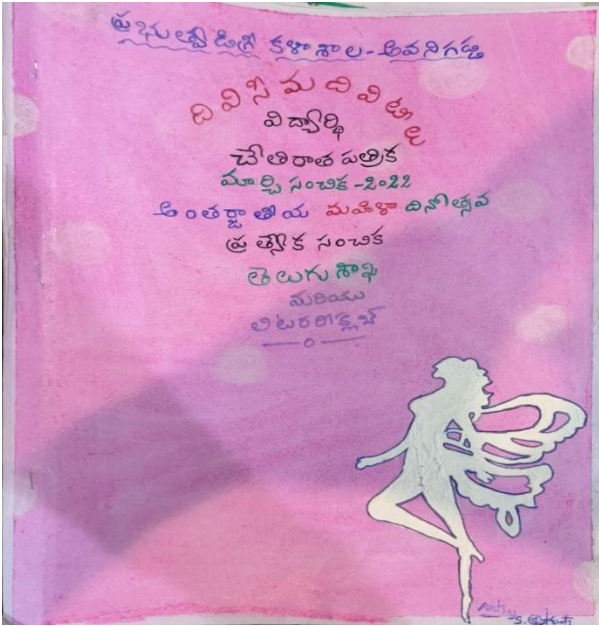 ప్రభుత్వ డిగ్రీ కళాశాల - అవనిగడ్డ
దివిసీమ దివిటీలు
విద్యార్థి
చేతిరాత పత్రిక
మార్చి సంచిక - 2022
అంతర్జాతీయ మహిళా దినోత్సవ
ప్రత్యేక సంచిక
తెలుగు శాఖ
మరియు
లిటరరీ క్లబ్